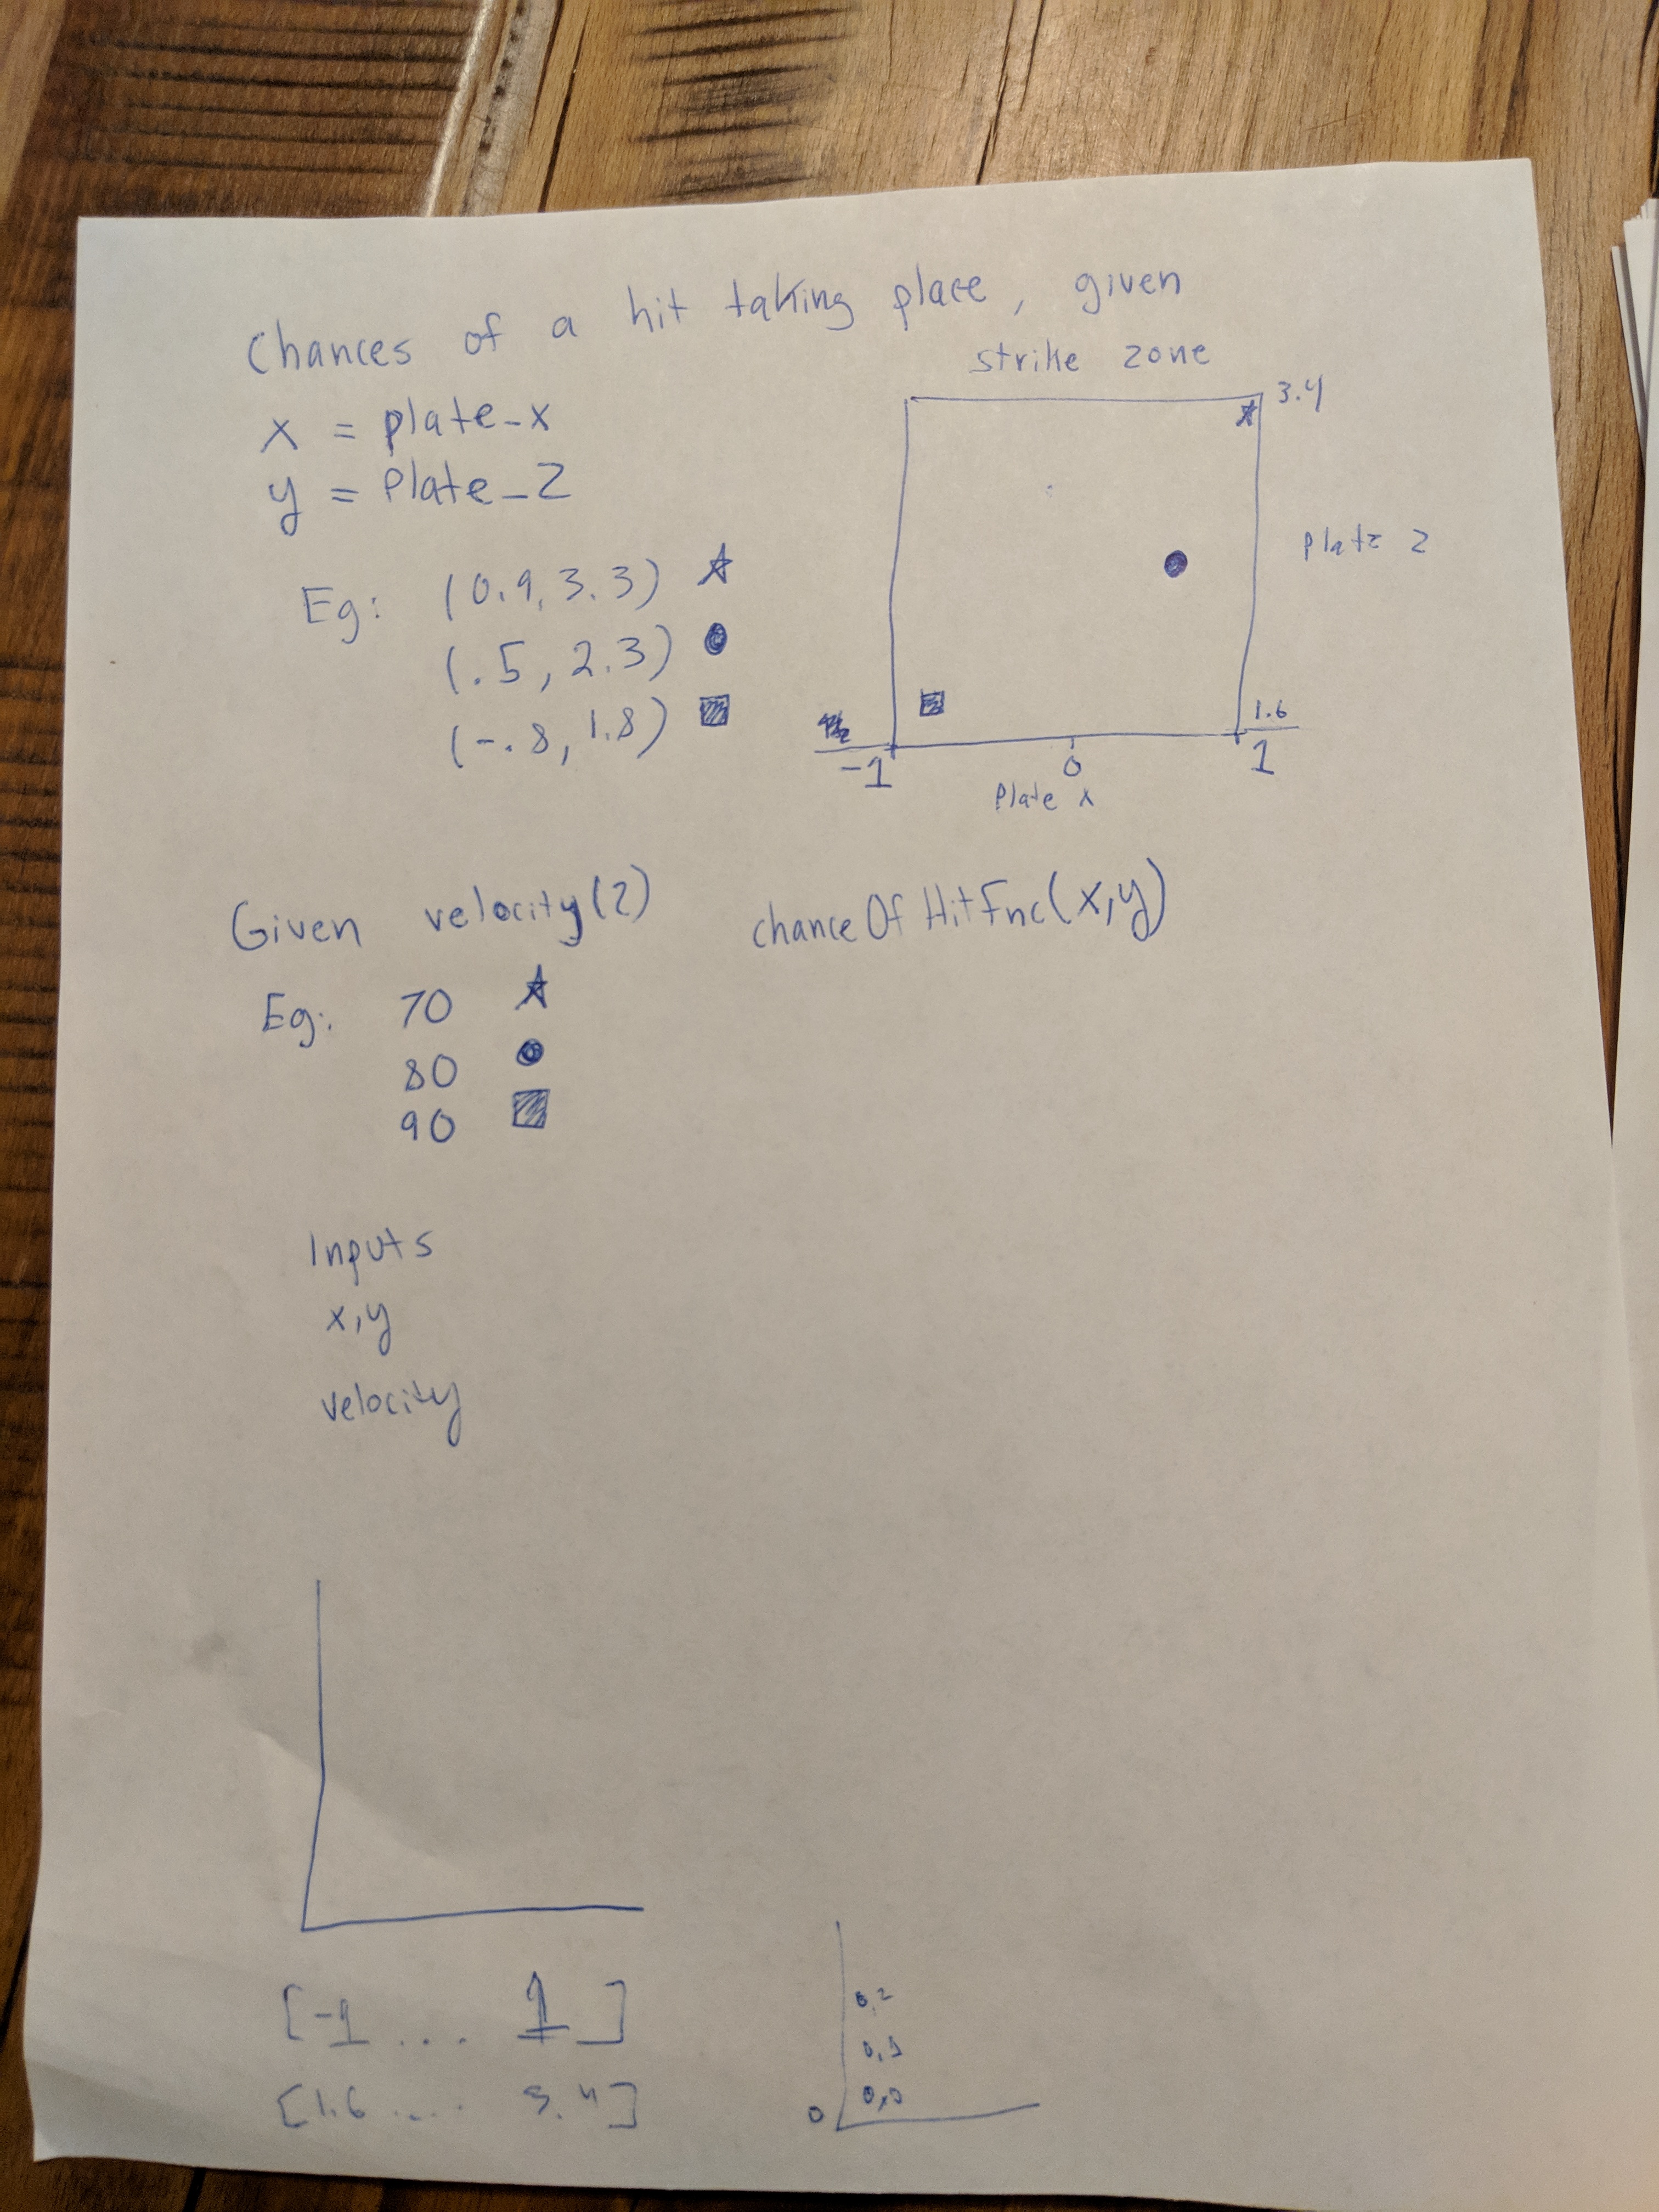 Chances of a hit taking place, given
x = plate_x
y = Plate_Z
Eg: (0.9, 3.3)
(.5, 2.3)
(-.8, 1.8)
strike zone
3.4
Plate z
1.6
-1
0
1
Plate x
Given velocity(z)
chanceOfHitFnc(x,y)
Eg: 70
80
90
Inputs
x,y
velocity
[-1 ... 1]
[1.6 ... 3.4]
0,2
0,1
0,0
0